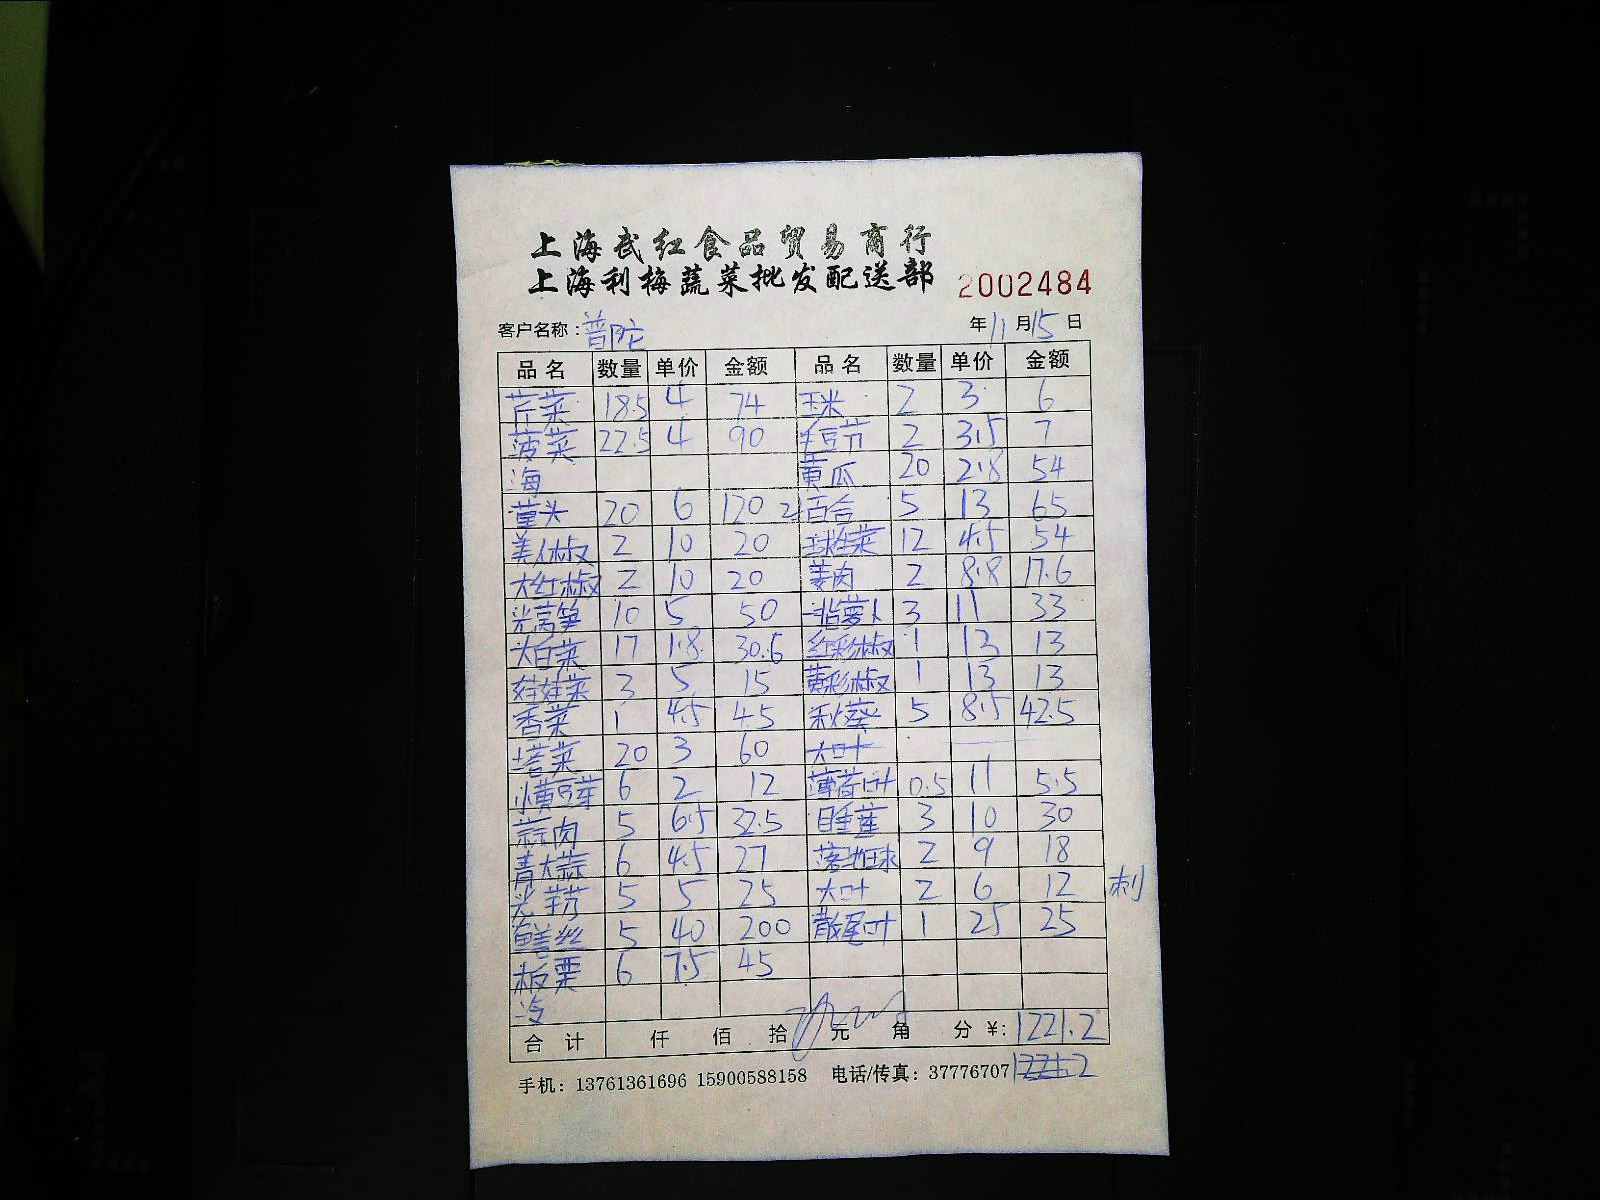 上海武红食品贸易商行
上海利梅蔬菜批发配送部 2002484
客户名称：普陀 年11月15日
品名 数量 单价 金额 品名 数量 单价 金额
芹菜 18.5 4 74 玉米 2 3 6
菠菜 22.5 4 90 2 3.5 7
海 黄瓜 20 2.8 54
头 20 6 120 百合 5 13 65
美人椒 2 10 20 菜 12 4.5 54
大红椒 2 10 20 姜肉 2 8.8 17.6
光莴笋 10 5 50 萝卜 3 11 33
大白菜 17 1.8 30.6 红彩椒 1 13 13
娃娃菜 3 5 15 黄彩椒 1 13 13
香菜 1 4.5 4.5 秋葵 5 8.5 42.5
塔菜 20 3 60 大叶
小黄豆芽 6 2 12 薄荷叶 0.5 11 5.5
蒜肉 5 6.5 32.5 睡莲 3 10 30
青大蒜 6 4.5 27 落地球 2 9 18
光芋艿 5 5 25 大叶 2 6 12 刺
5 40 200 散尾叶 1 25 25
板栗 6 7.5 45
合计 仟 佰 拾 元 角 分 ¥：1221.2
手机：13761361696 15900588158 电话/传真：37776707